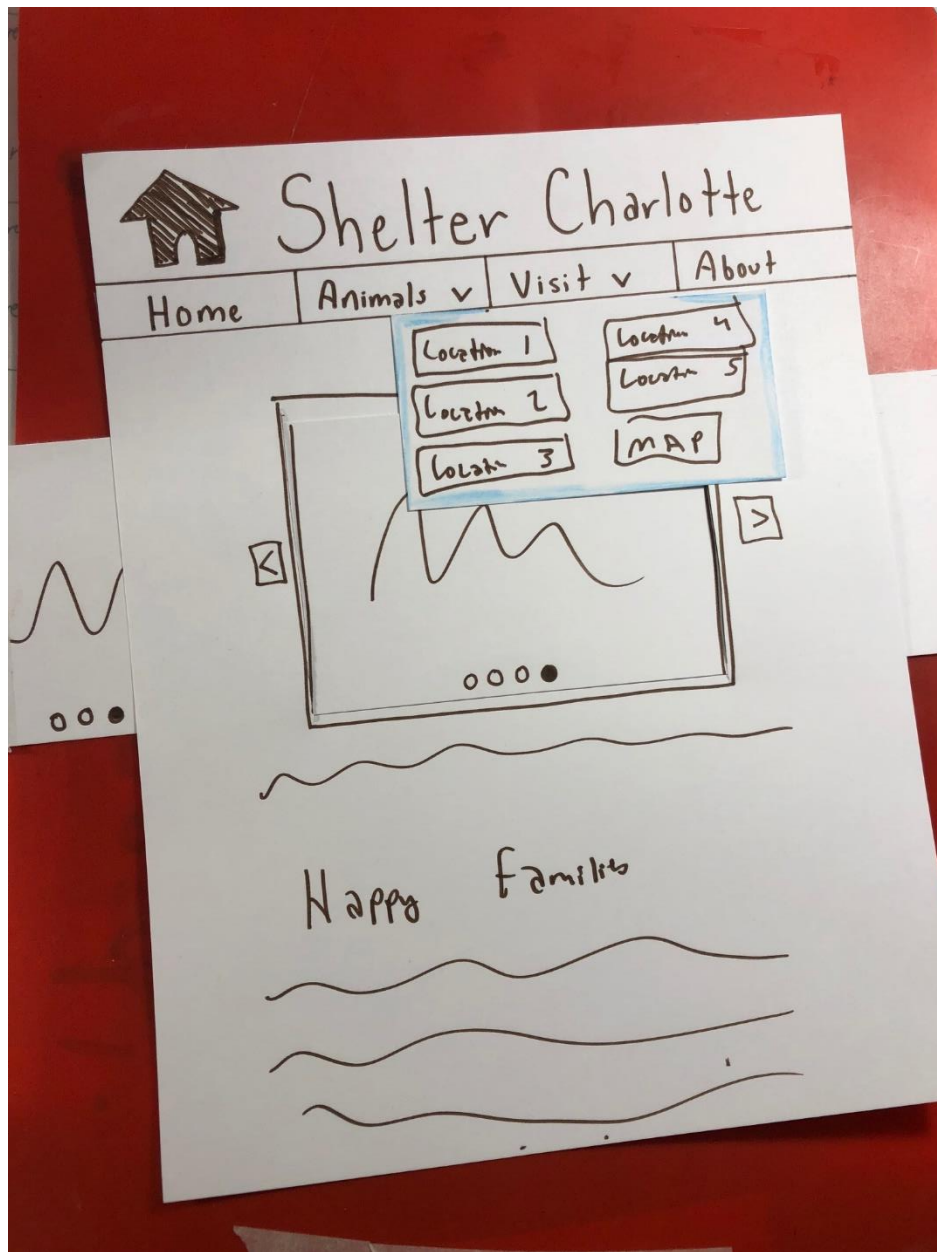 Shelter Charlotte
Home Animals v Visit v About
Location 1 Location 4
Location 2 Location 5
Location 3 MAP
< >
Happy Families